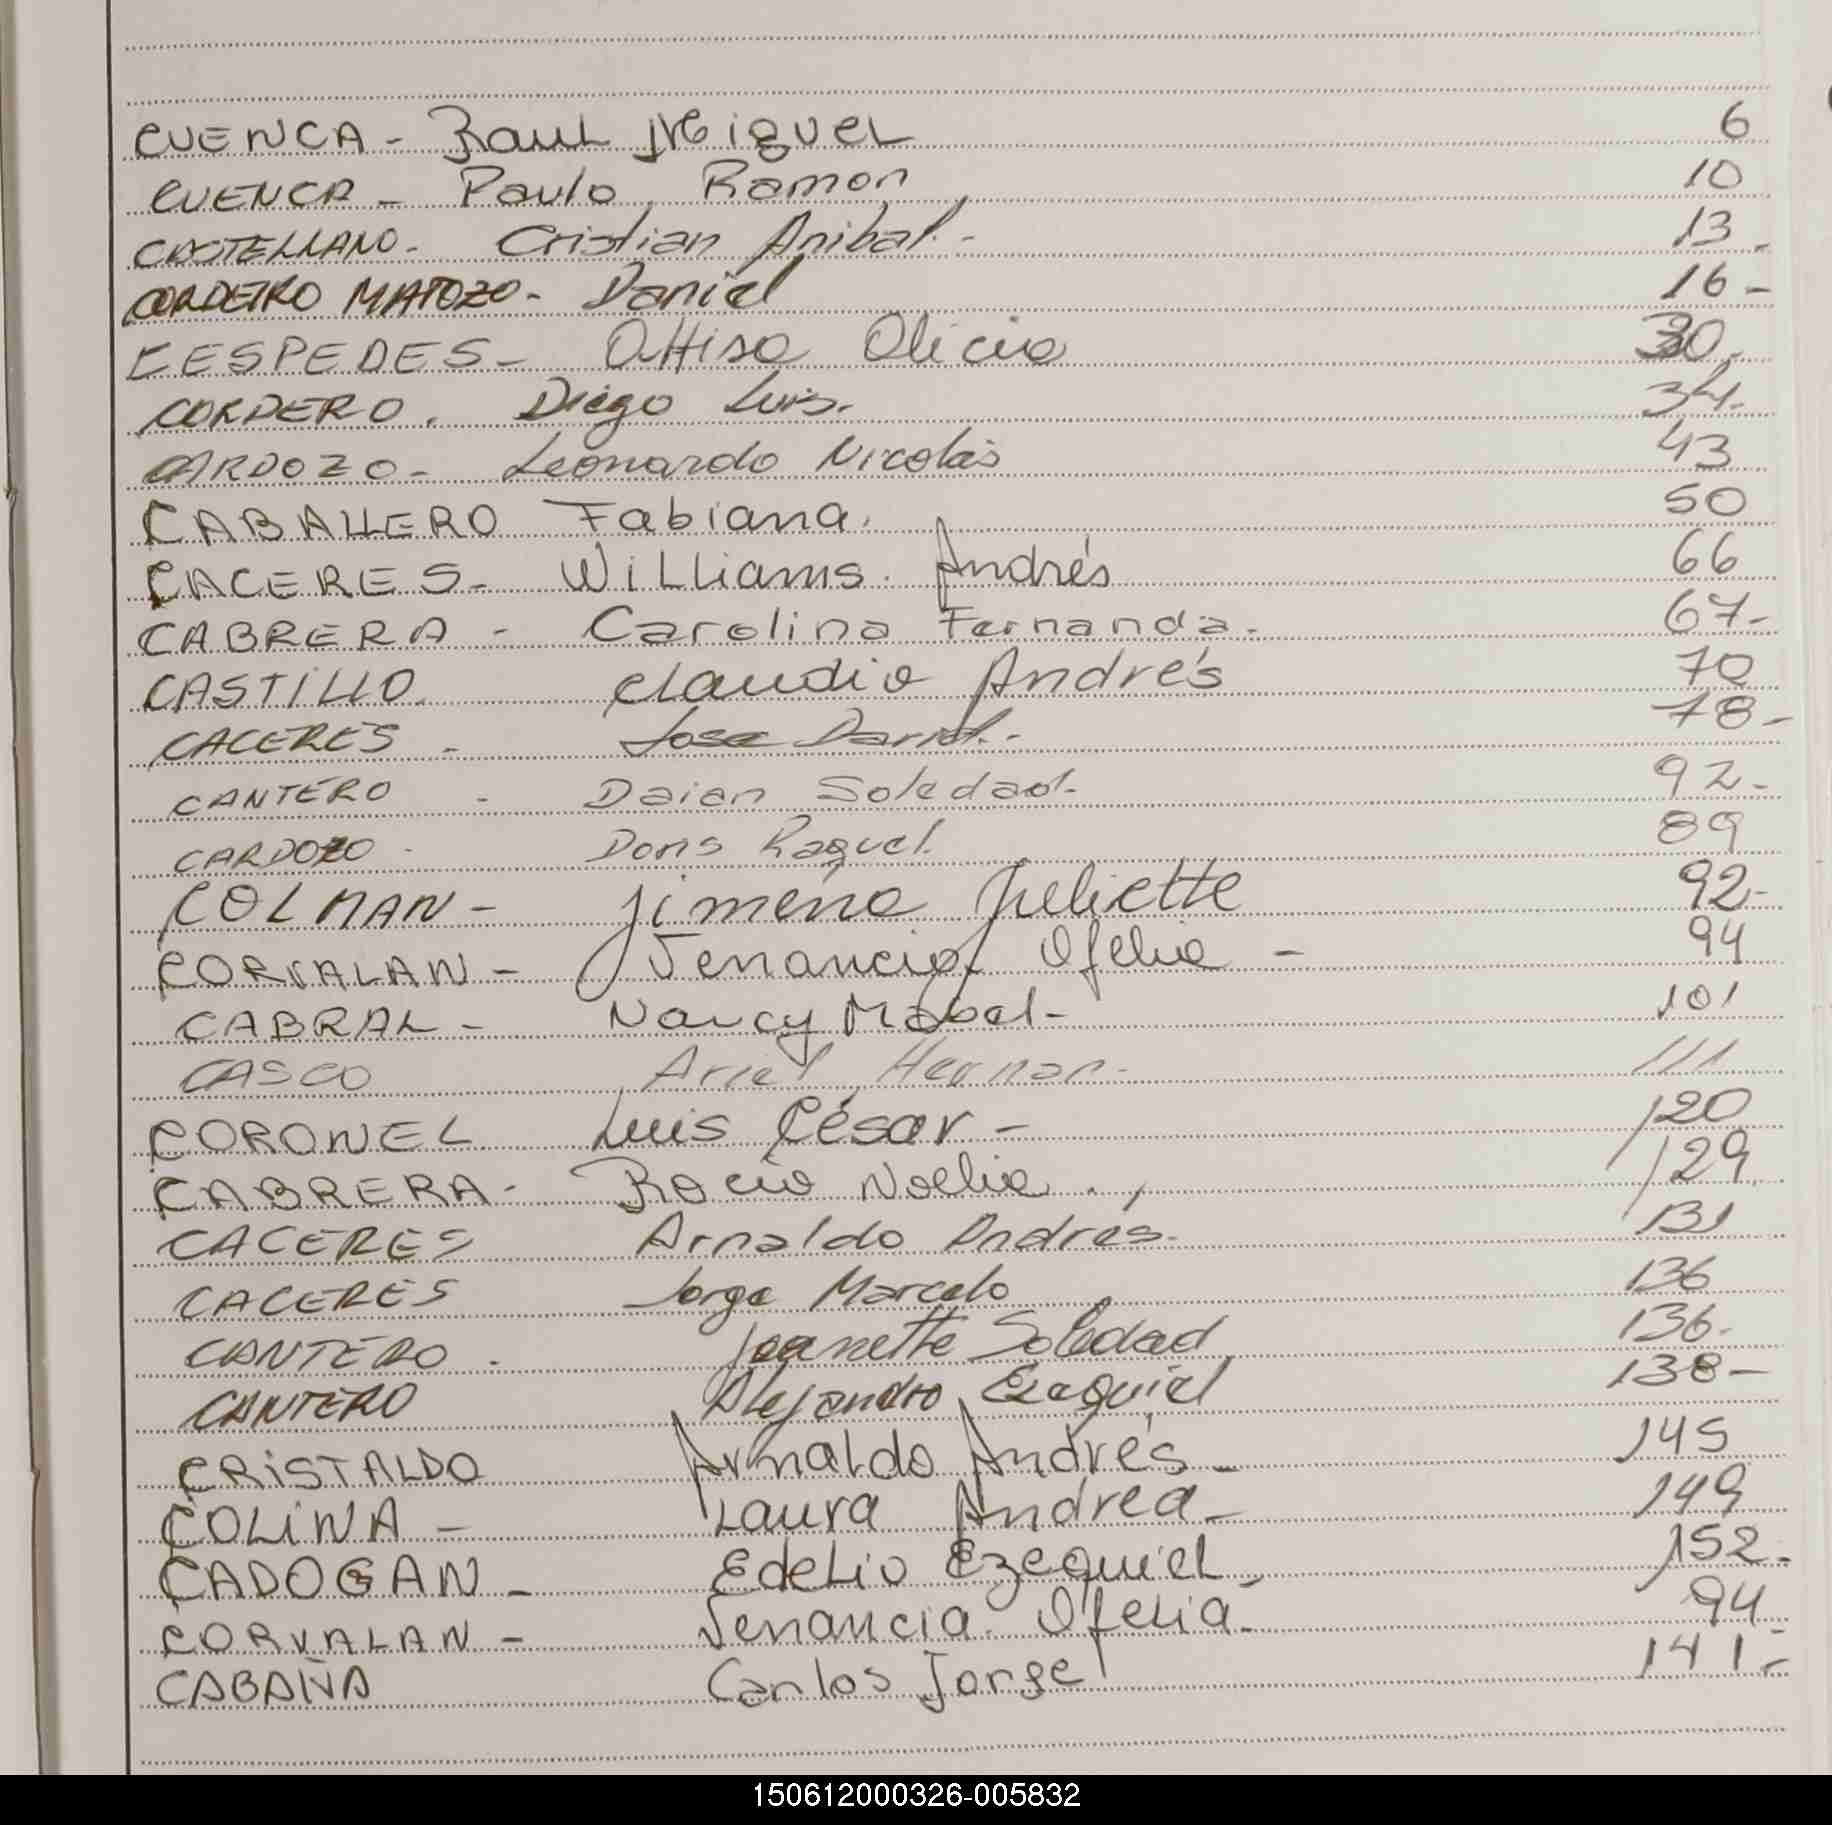 CUENCA - Raul Miguel 6
CUENCA - Paulo Ramon 10
CASTELLANO - Cristian Anibal. - 13 -
CORDEIRO MATOZO - Daniel 16 -
CESPEDES - Olicia 30 -
CORDERO. Diego Luis. 34 -
CARDOZO - Leonardo Nicolás 43
CABALLERO Fabiana. 50
CACERES - Williams. Andrés 66
CABRERA - Carolina Fernanda. 67 -
CASTILLO. Claudio Andrés 70
CACERES - Jose Daniel. - 78 -
CANTERO - Daian Soledad. 92 -
CARDOZO - Doris Raquel. 89
COLMAN - Jimena Juliette 92 -
CORVALAN - Venancia Ofelia - 94
CABRAL - Nancy Mabel - 101
CASCO Ariel Hernan. 111
CORONEL Luis César - 120
CABRERA - Rocío Noelia . , 129
CACERES Arnaldo Andrés. 131
CACERES Jorge Marcelo 136
CANTERO. Jeanette Soledad 136.
CANTERO Alejandro Ezequiel 138 -
CRISTALDO Arnaldo Andrés - 145
COLINA - Laura Andrea - 149
CADOGAN - Edelio Ezequiel - 152.
CORVALAN - Venancia Ofelia - 94
CABAÑA Carlos Jorge 141 -
150612000326-005832